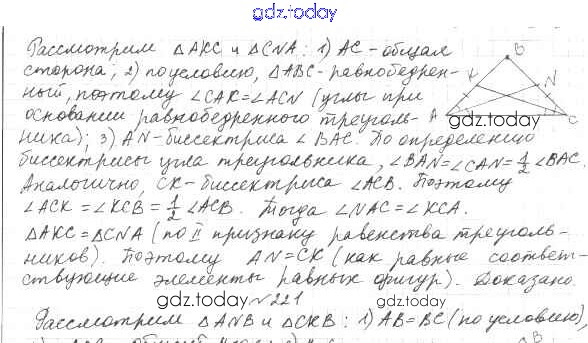 gdz.today
Рассмотрим △AKC и △CNA: 1) AC - общая
сторона; 2) по условию, △ABC - равнобедрен-
ный, поэтому ∠CAK = ∠ACN (углы при
основании равнобедренного треуголь-
ника); 3) AN - биссектриса ∠BAC. По определению
биссектрисы угла треугольника, ∠BAN = ∠CAN = 1/2 ∠BAC.
Аналогично, CK - биссектриса ∠ACB. Поэтому
∠ACK = ∠KCB = 1/2 ∠ACB. Тогда ∠NAC = ∠KCA.
△AKC = △CNA (по II признаку равенства треуголь-
ников). Поэтому AN = CK (как равные соответ-
ствующие элементы равных фигур). Доказано.
B
K
N
A
gdz.today
gdz.today
gdz.today
gdz.today
№221
Рассмотрим △ANB и △CKB: 1) AB = BC (по условию)
B